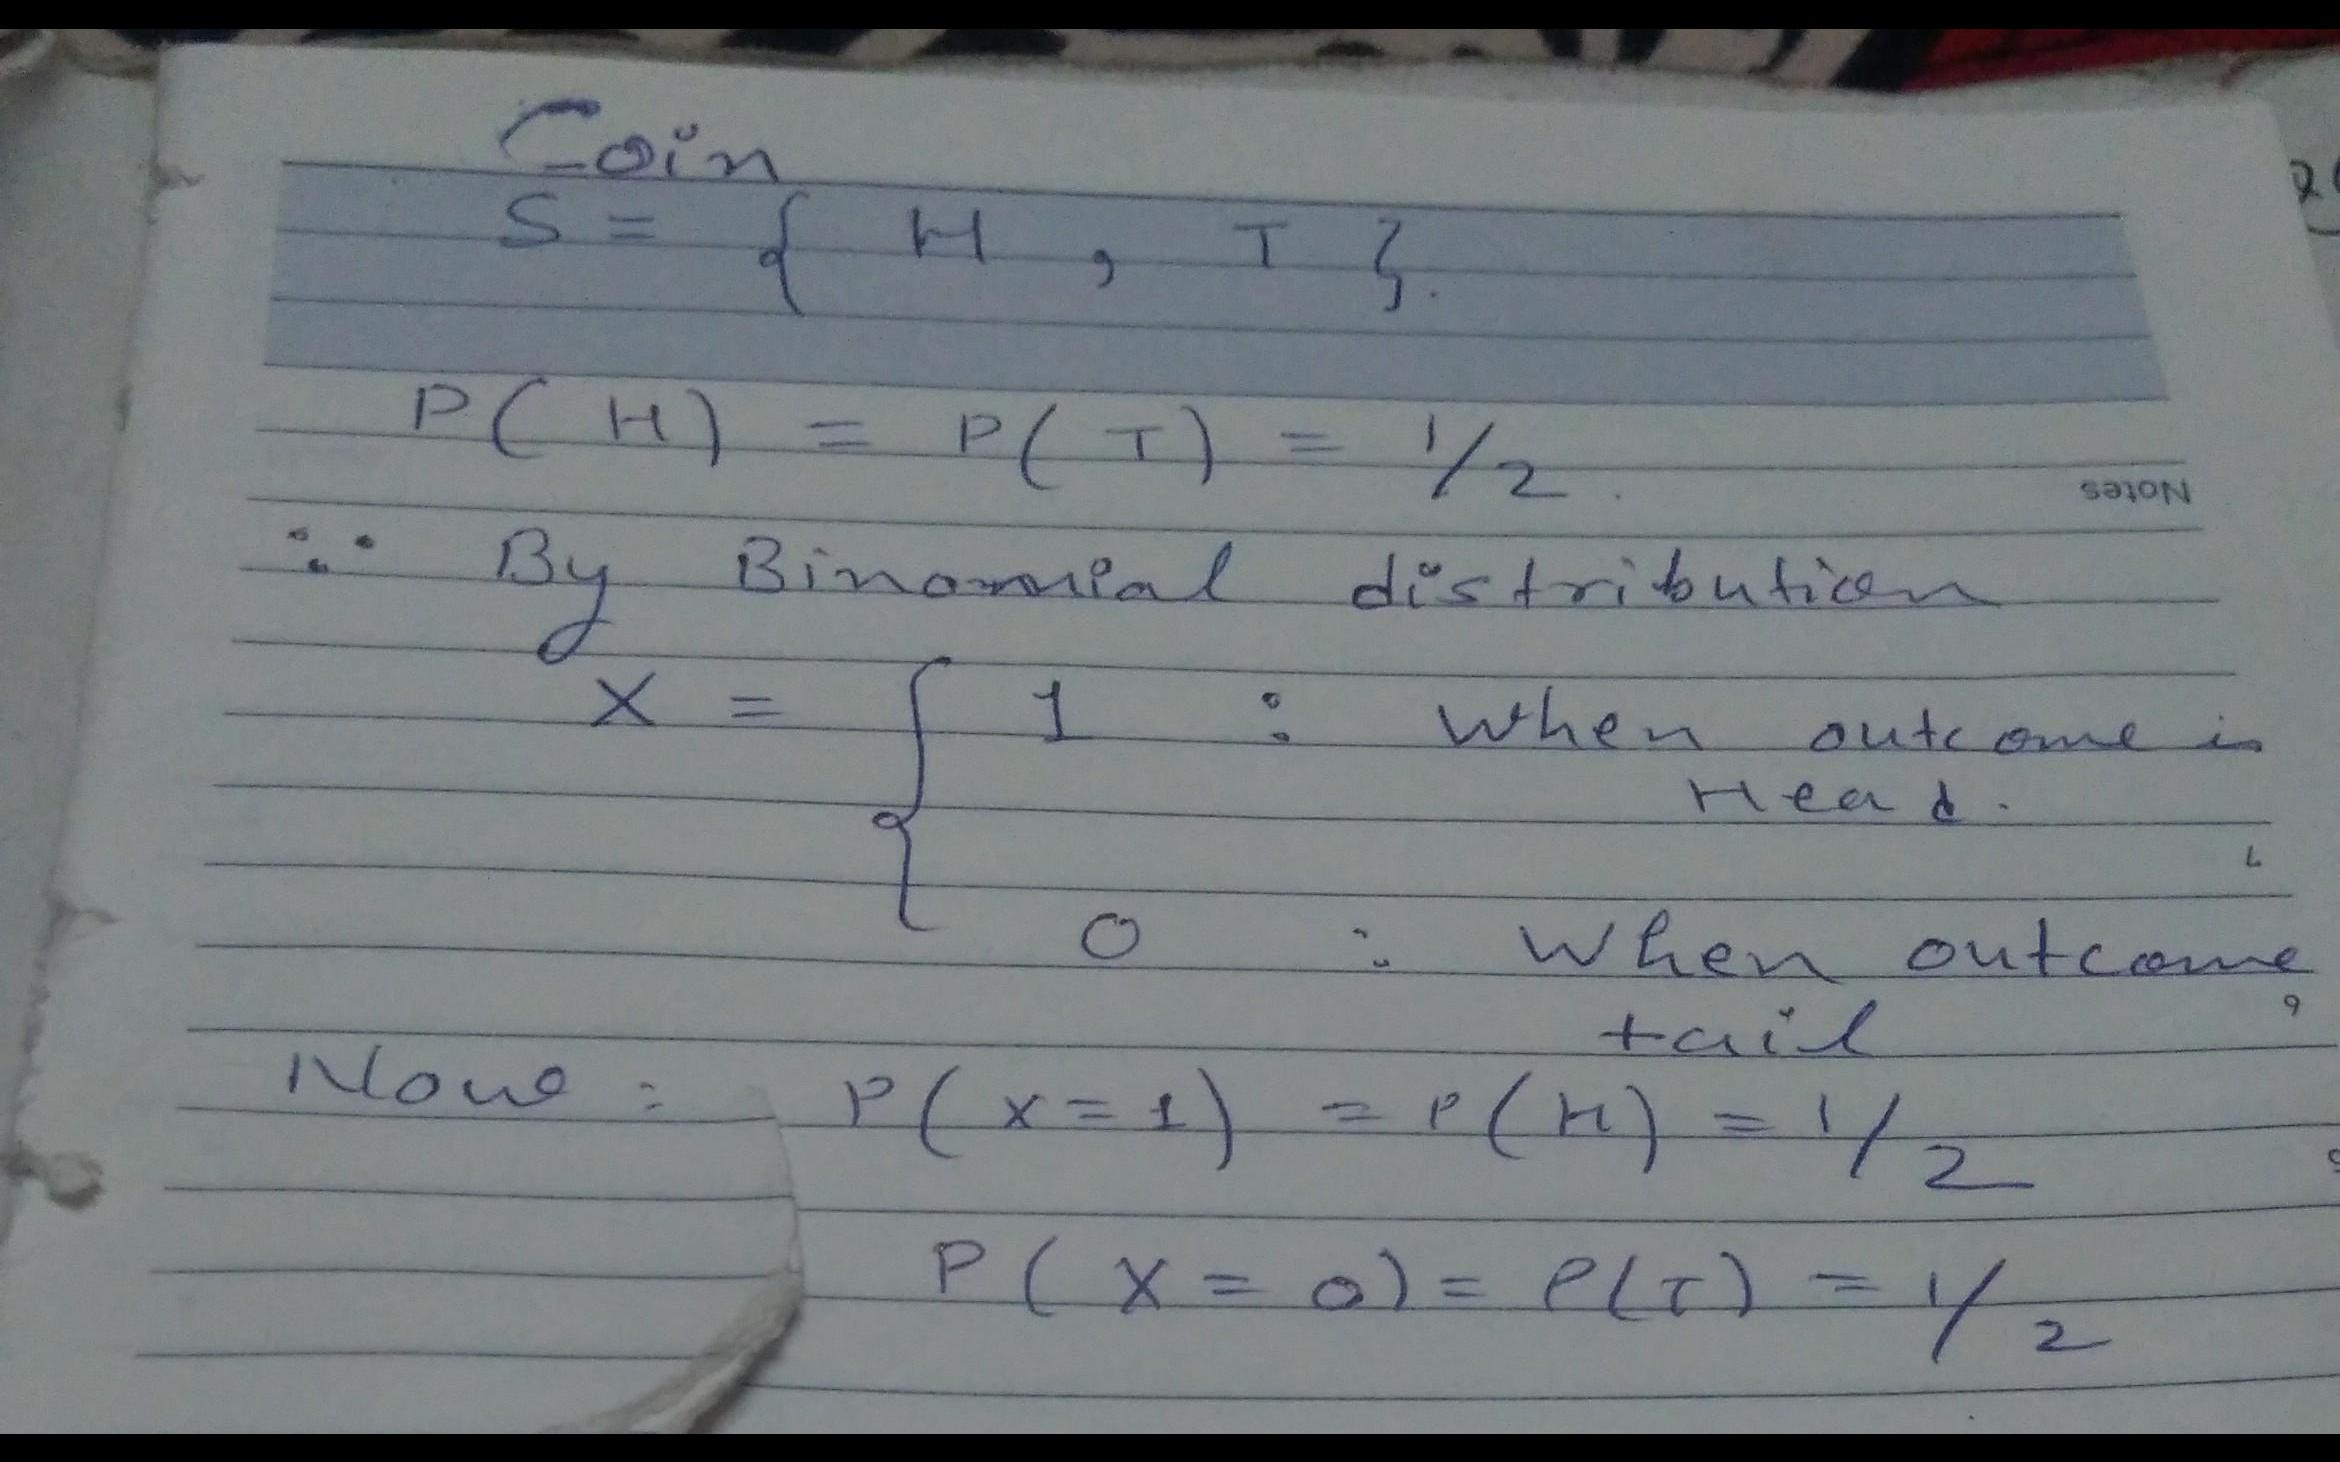 Coin
S = { H , T }.
P( H ) = P( T ) = 1/2.
Notes
∵ By Binomial distribution
X = { 1 : When outcome is
Head.
0 : When outcome
tail
Now : P( X = 1 ) = P( H ) = 1/2
P( X = 0 ) = P( T ) = 1/2